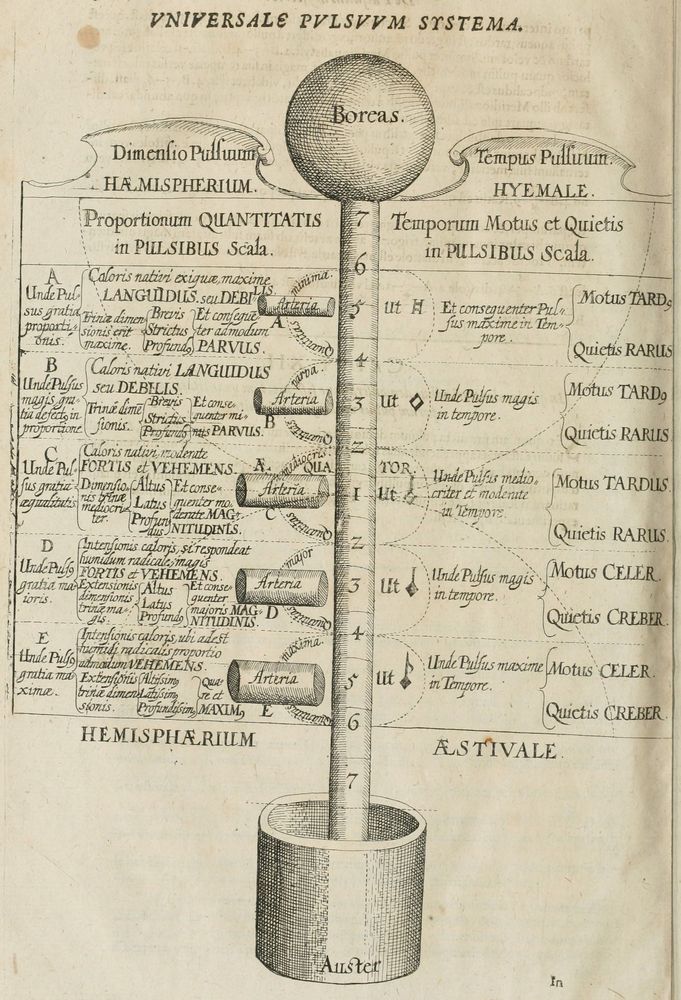 VNIVERSALE PVLSVVM SYSTEMA.
Boreas.
Dimensio Pulsuum
HÆMISPHERIUM.
Tempus Pulsuum.
HYEMALE.
Proportionum QUANTITATIS
in PULSIBUS Scala.
Temporum Motus et Quietis
in PULSIBUS Scala.
7
6
5
4
3
2
1
2
3
4
5
6
7
A
Unde Pul-
sus gratia
proporti-
onis.
Caloris nativi exiguæ, maxime
LANGUIDUS. seu DEBILIS.
Trinæ dimen-
sionis erit
maxime.
Brevis
Strictus
Profundꝰ
Et conseque-
ter admodum
PARVUS.
minima.
Arteria
A
Quantitas
ut
Et consequenter Pul-
sus maxime in Tem-
pore.
Motus TARDꝰ
Quietis RARUS
B
Unde Pulsus
magis gra-
tia defect, in
proportione
Caloris nativi LANGUIDUS
seu DEBILIS.
Trinæ dime
sionis.
Brevis
Strictus
Profundꝰ
Et conse-
quenter mi-
nus PARVUS.
parva.
Arteria
B
Quantitas
ut
Unde Pulsus magis
in tempore.
Motus TARDꝰ
Quietis RARUS
C
Unde Pul-
sus gratia
æqualitatis
Caloris nativi moderate
FORTIS et VEHEMENS.
Dimensio-
nis trinæ
mediocri-
ter.
Altus
Latus
Profun-
dus
Et conse-
quenter mo-
derate MAG-
NITUDINIS.
Æ-
QUA
TOR.
mediocris
Arteria
C
Quantitas
ut
Unde Pulsus medio-
criter et moderate
in Tempore.
Motus TARDUS
Quietis RARUS.
D
Unde Pulsꝰ
gratia ma-
ioris.
Intensionis caloris, si respondeat
humidum radicale, magis
FORTIS et VEHEMENS.
Extensionis
dimensionis
trinæ ma-
gis.
Altus
Latus
Profundꝰ
Et conse-
quenter
majoris MAG-
NITUDINIS.
major
Arteria
D
Quantitas
Ut
Unde Pulsus magis
in tempore.
Motus CELER.
Quietis CREBER.
E
Unde Pulsꝰ
gratia ma-
ximæ.
Intensionis caloris, ubi adest
humidi radicalis proportio
admodum VEHEMENS.
Extensionis
trinæ dimen-
sionis.
Altissimꝰ
Latissimꝰ
Profundissimꝰ
Qua-
re et
MAXIMꝰ
maxima.
Arteria
E
Quantitas
Ut
Unde Pulsus maxime
in Tempore.
Motus CELER.
Quietis CREBER.
HEMISPHÆRIUM
ÆSTIVALE.
Auster
In